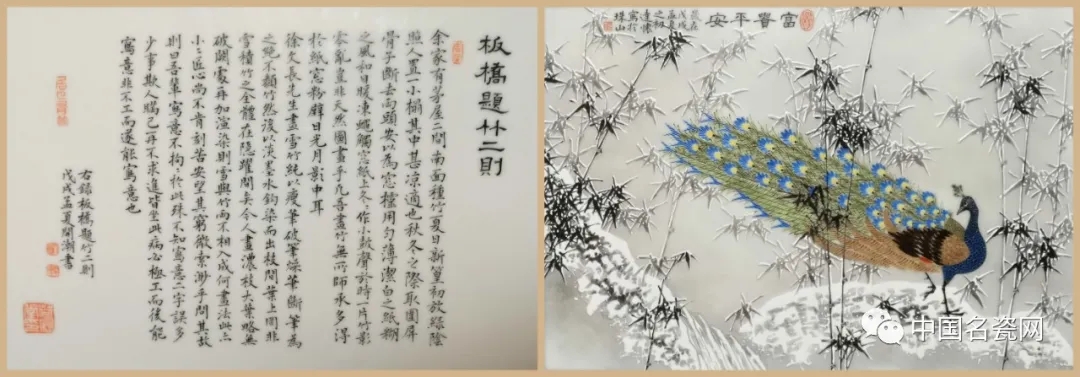 板橋題竹二則
余家有茅屋二間南面種竹夏日新篁初放綠陰
照人置一小榻其中甚涼適也秋冬之際取圍屏
骨子斷去兩頭安以為窓櫺用勻薄潔白之紙糊
之風和日暖凍蠅觸窓紙上冬〻作小鼓聲於時一片竹影
零亂豈非天然圖畫乎凡吾畫竹無所師承多得
於紙窓粉壁日光月影中耳
徐文長先生畫雪竹純以瘦筆破筆燥筆斷筆為
之絕不類竹然後以淡墨水鈎染而出枝間葉上罔非
雪積竹之全體在隱躍間矣今人畫濃枝大葉略無
破闕處再加渲染則雪與竹兩不相入成何畫法此亦
小〻匠心尚不肯刻苦安望其窮微索渺乎問其故
則曰吾輩寫意不拘〻於此殊不知寫意二字誤多
少事欺人瞞己再不求進皆坐此病必極工而後能
寫意非不工而遂能寫意也
右錄板橋題竹二則
戊戌孟夏閒潮書
富貴平安
歲在
戊戌
孟夏
之初
達懷
寫於
珠山
中国名瓷网